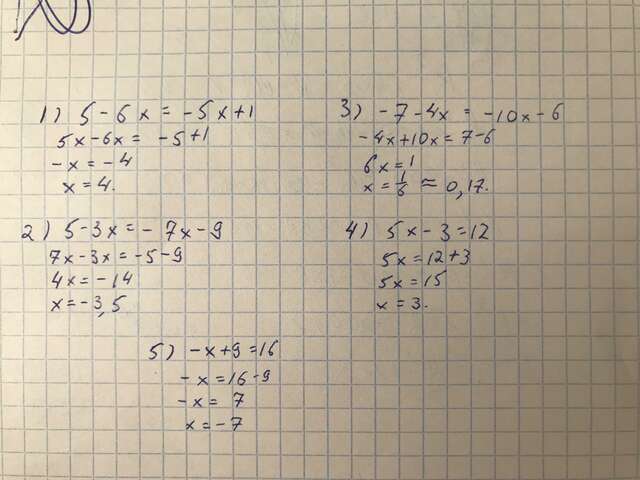 1) 5 - 6x = -5x+1
5x-6x = -5+1
-x = -4
x = 4.
2) 5-3x = -7x-9
7x-3x = -5-9
4x = -14
x = -3,5
3) -7-4x = -10x-6
-4x+10x = 7-6
6x = 1
x = 1/6 ≈ 0,17.
4) 5x - 3 = 12
5x = 12+3
5x = 15
x = 3.
5) -x+9 = 16
-x = 16-9
-x = 7
x = -7